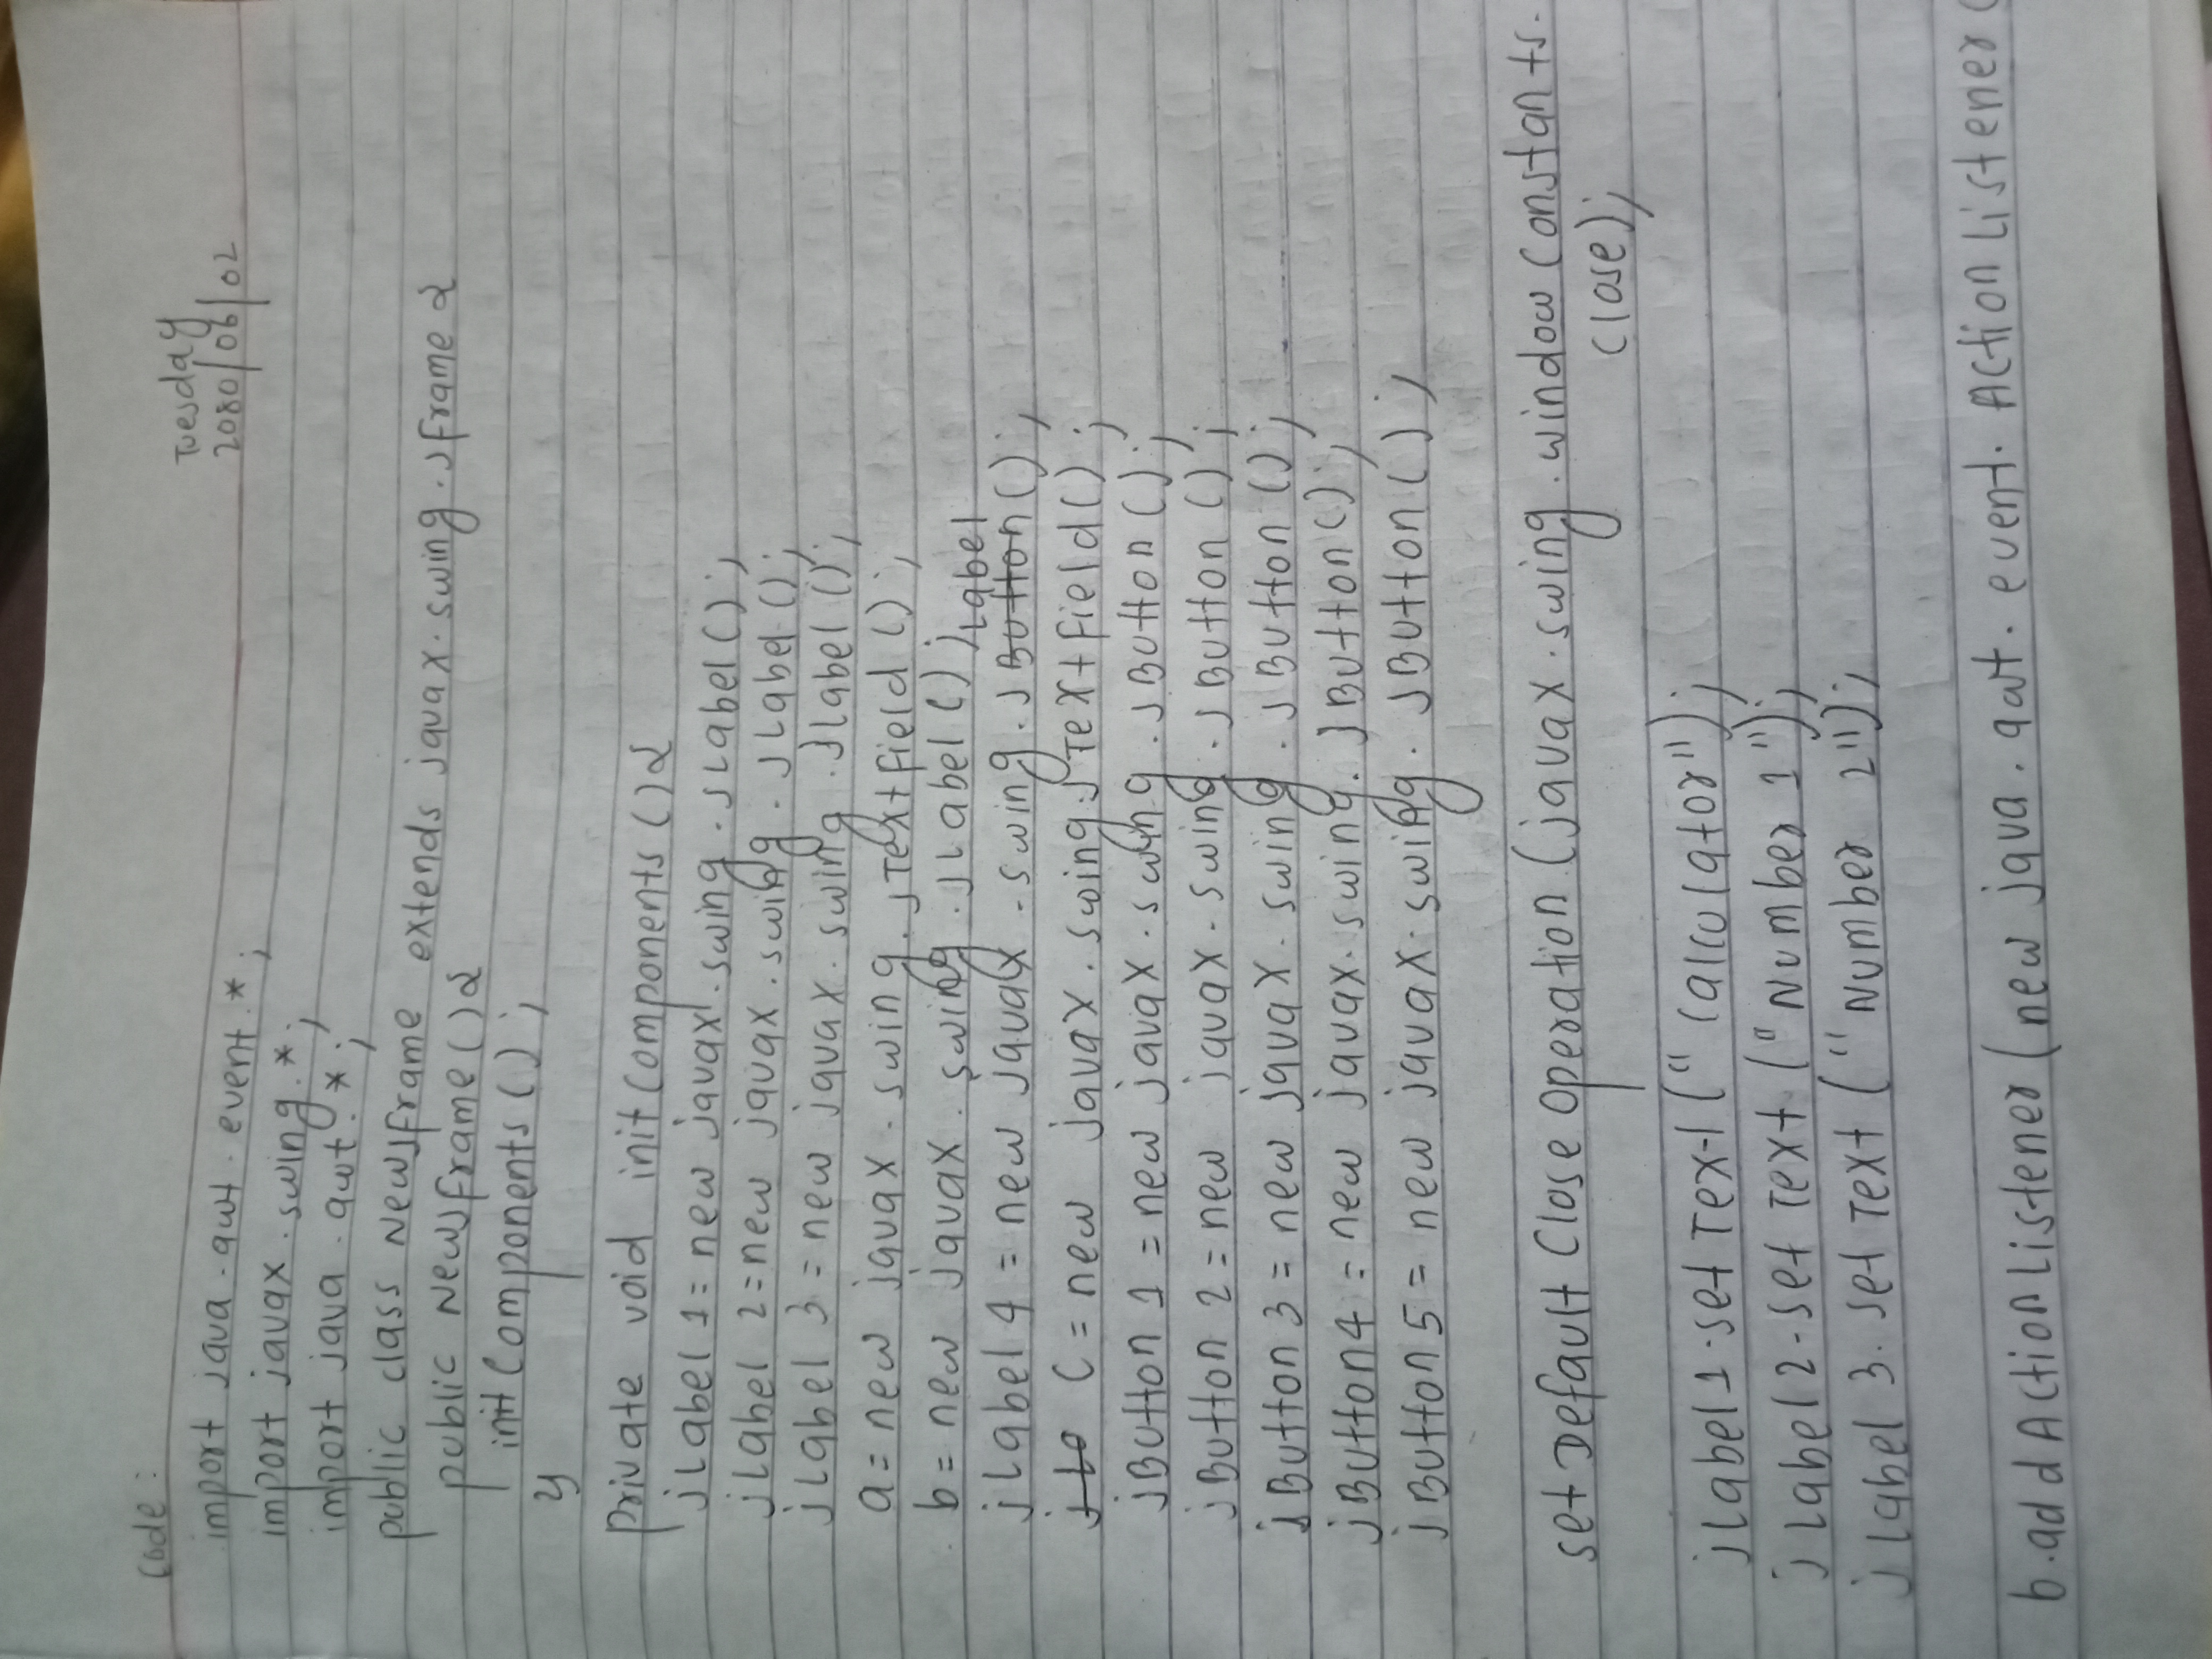 Tuesday
2080/06/02
Code:
import java.awt.event.*;
import javax.swing.*;
import java.awt.*;
public class NewJFrame extends javax.swing.JFrame {
public NewJFrame() {
initComponents();
}
Private void initComponents() {
jLabel1 = new javax.swing.JLabel();
jLabel2 = new javax.swing.JLabel();
jLabel3 = new javax.swing.JLabel();
a = new javax.swing.JTextField();
b = new javax.swing.JLabel();
Label
jLabel4 = new javax.swing.JButton();
C = new javax.swing.JTextField();
jButton1 = new javax.swing.JButton();
jButton2 = new javax.swing.JButton();
jButton3 = new javax.swing.JButton();
jButton4 = new javax.swing.JButton();
jButton5 = new javax.swing.JButton();
set Default Close Operation (javax.swing.window Constants.
Close);
jLabel1.set Text ("Calculator");
jLabel2.set Text ("Number 1");
jLabel3.set Text ("Number 2");
b.add ActionListener (new java.awt.event.ActionListener (